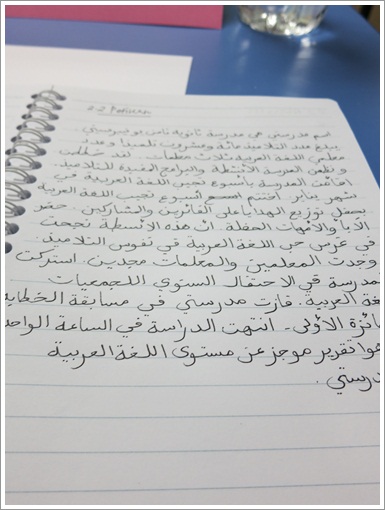 2-2
اسم مدرستي هي مدرسة ثانوية
يبلغ عدد التلاميذ مائة وعشرون تلميذا وعدد
معلمي اللغة العربية ثلاث معلمات. لقد
و تظهر المدرسة الأنشطة والبرامج المفيدة للتلاميذ.
أقامت المدرسة بأسبوع نحب اللغة العربية في
شهر يناير. اختتم أسبوع نحب اللغة العربية
بحفل توزيع الهدايا على الفائزين والمشاركين. حضر
الآباء والأمهات الحفلة. إن هذه الأنشطة نجحت
في غرس حب اللغة العربية في نفوس التلاميذ.
وجدت المعلمين والمعلمات مجدين. اشتركت
مدرسة في الاحتفال السنوي للجمعيات
غة العربية. فازت مدرستي في مسابقة الخطابة
ائزة الأولى. انتهت الدراسة في الساعة الواحد
هو تقرير موجز عن مستوى اللغة العربية
درستي.